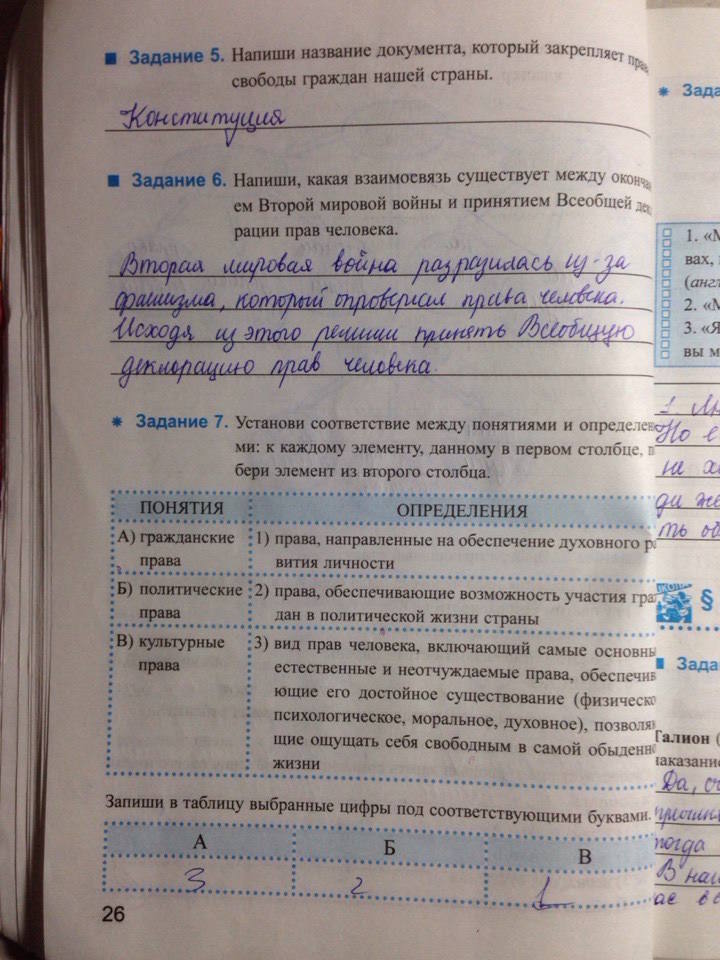 ■ Задание 5. Напиши название документа, который закрепляет права
свободы граждан нашей страны.
Конституция
■ Задание 6. Напиши, какая взаимосвязь существует между оконча
ем Второй мировой войны и принятием Всеобщей дек
рации прав человека.
Вторая мировая война разразилась из-за
фашизма, который опровергал права человека.
Исходя из этого решили принять Всеобщую
декларацию прав человека.
* Задание 7. Установи соответствие между понятиями и определен
ми: к каждому элементу, данному в первом столбце, п
бери элемент из второго столбца.
ПОНЯТИЯ ОПРЕДЕЛЕНИЯ
А) гражданские 1) права, направленные на обеспечение духовного ра
права вития личности
Б) политические 2) права, обеспечивающие возможность участия граж
права дан в политической жизни страны
В) культурные 3) вид прав человека, включающий самые основны
права естественные и неотчуждаемые права, обеспечив
ющие его достойное существование (физическо
психологическое, моральное, духовное), позволяю
щие ощущать себя свободным в самой обыденно
жизни
Запиши в таблицу выбранные цифры под соответствующими буквами.
А Б В
3 2 1
26
* Зада
1. «М
вах,
(англ
2. «М
3. «Я
вы м
1.
Но в
на
ди же
ть об
§
■ Зада
Галион (
наказание
Да,
прошл
тогда
В наш
ас в